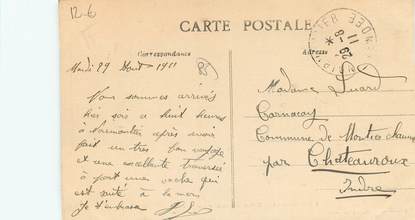 12-6
CARTE POSTALE
Correspondance
Adresse
Mardi 29 Août 1911
Nous sommes arrivés
hier soir à huit heures
à Noirmoutier après avoir
fait un très bon voyage
et une excellente traversée
à part une vache qui
est
à la mer
Je t'embrasse
Madame
Commune de
par Châteauroux
Indre